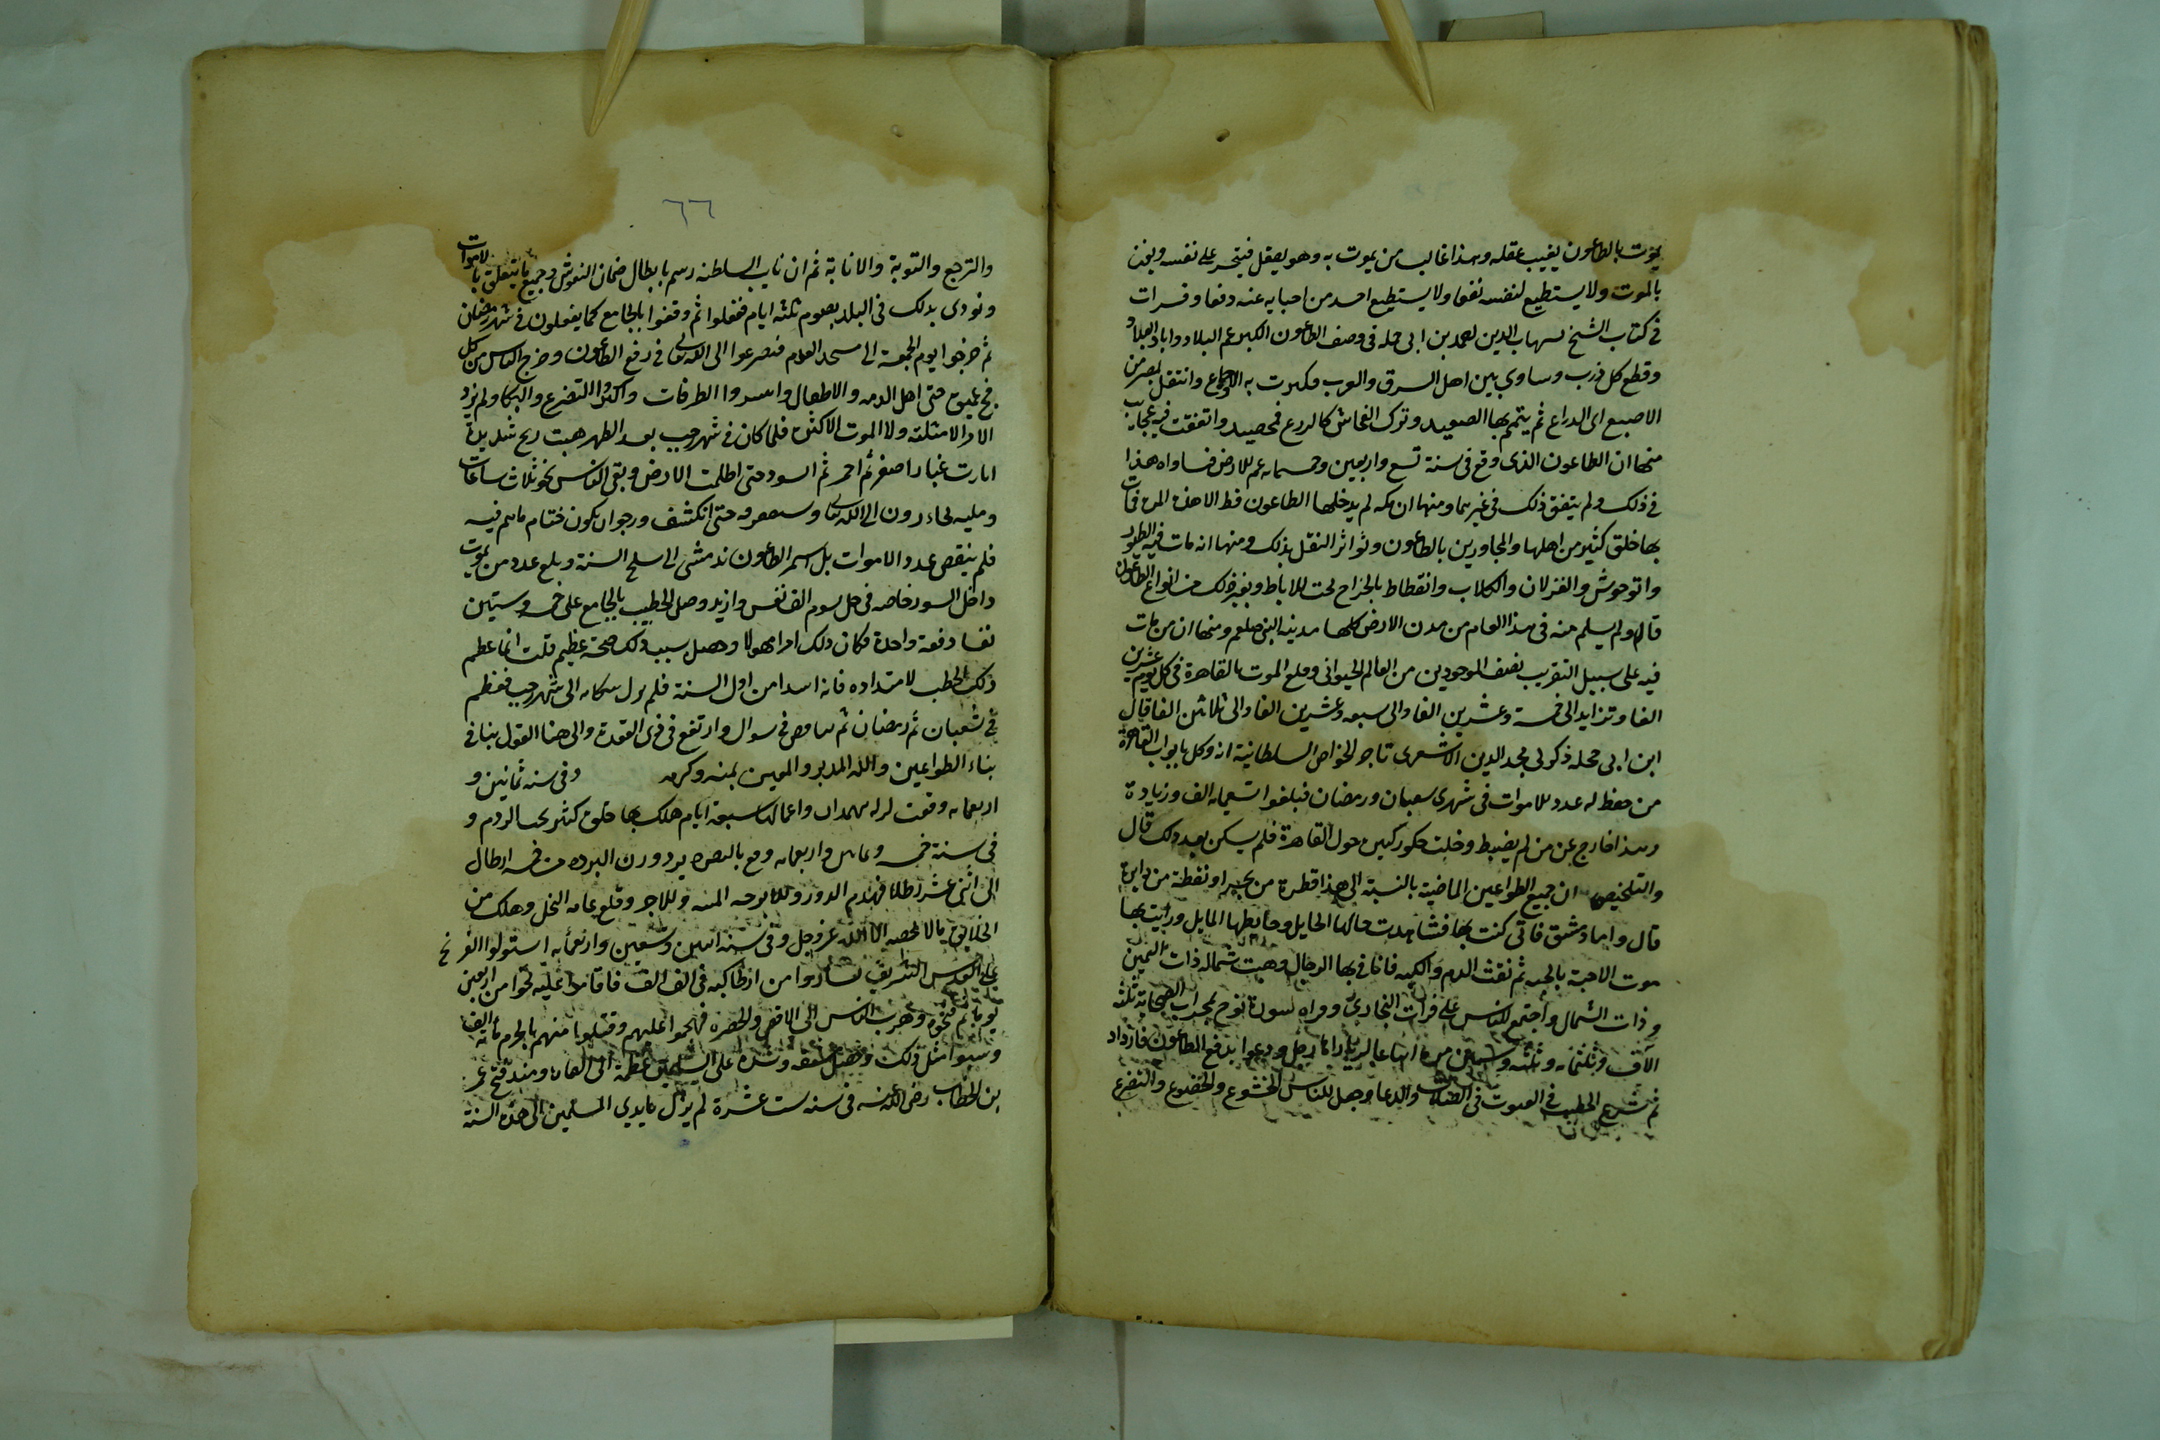 يموت بالطاعون يغيب عقله وهذا غالب من يموت به وهو يعقل فيتحسر على نفسه ويحزن
بالموت ولا يستطيع لنفسه نفعا ولا يستطيع احد من احبابه عنه دفعا وقرات
في كتاب الشيخ شهاب الدين احمد بن ابى حجله فى وصف الطاعون الكبير عم البلاد واباد العباد
وقطع كل درب وساوى بين اهل الشرق والغرب وانتقل بمصر من
الاصبع الى الدراع ثم يتمم بها الصعيد وترك كالزرع فحصيد واتفقت فيه عجايب
منها ان الطاعون الذى وقع فى سنة تسع واربعين وسبعمايه عم الارض فساواه هذا
فى ذلك ولم يتفق ذلك فى غيرهما ومنها ان مكه لم يدخلها الطاعون قط الا هذه المره فمات
بها خلق كثير من اهلها والمجاورين بالطاعون وتواثر النقل بذلك ومنها انه مات فيه الطيور
والوحوش والغزلان والكلاب والقطاط بالخراج تحت الاباط وبغير ذلك من انواع الطاعون
قال ولم يسلم منه فى هذا العام من مدن الارض كلها مدينه النبى صلعم ومنها ان من مات
فيه على سبيل التقريب نصف الموجودين من العالم الحيوانى وبلغ الموت بالقاهرة فى كل يوم عشرين
الفا وتزايد الى خمسة وعشرين الفا والى سبعه وعشرين الفا والى ثلاثين الفا قال
ابن ابى حجله ذكر لى مجد الدين الاشعرى تاجر الخواص السلطانية انه وكل بابواب القاهرة
من حفظ له عدد الاموات فى شهرى شعبان ورمضان فبلغوا تسعمايه الف وزيادة
وهذا خارج عن من لم يضبط وخلت حكور كبيره حول القاهرة فلم يسكن بعد ذلك قال
والتلخيص ان جميع الطواعين الماضية بالنسبة الى هذا قطرة من بحر او نقطة من دايرة
قال واما دمشق فانى كنت بها فشاهدت حالها الحايل وحايطها المايل ورايت بها
موت الاحبة بالحبه ثم نفث الدم والكبه فافانى بها الرجال وهبت شماله ذات اليمين
وذات الشمال واجتمع الناس على قرات البخارى وقراه سورة نوح بمحراب الصحابة ثلثة
الاف وثلثمايه وثلثه وستين مره ودعوا بدفع الطاعون فازداد
ثم شرع الخطيب فى القنوت فى الصلوات والدعا وحصل للناس الخشوع والخضوع والتضرع
٦٦
والترجع والتوبة والانابة ثم ان نايب السلطنه رسم بابطال ضمان النعوش وجميع ما يتعلق بالاموات
ونودى بذلك فى البلد بصوم ثلثه ايام ففعلوا ثم وقفوا بالجامع كما يفعلون فى شهر رمضان
ثم خرجوا يوم الجمعة الى مسجد القدم فتضرعوا الى الله تعالى فى رفع الطاعون وخرج الناس من كل
فج عميق حتى اهل الذمه والاطفال وانسدوا الطرقات واكثروا التضرع والبكا ولم يزدد
الامر الا مثلته ولا الموت الا كثره فلما كان فى شهر رجب بعد الظهر هبت ريح شديدة
اثارت غبارا اصفر ثم احمر ثم اسود حتى اظلمت الارض وبقى الناس نحو ثلاث ساعات
يجاءرون الى الله تعالى ويستغفروه حتى انكشف ورجوا ان يكون ختام ما هم فيه
فلم ينقص عدد الاموات بل استمر الطاعون بدمشق الى سلخ السنة وبلغ عدد من يموت
داخل السور خاصه فى كل يوم الف نفس وازيد وصلى الخطيب بالجامع على خمسة وستين
نفسا دفعة واحدة فكان ذلك امرا مهولا وحصل بسبب ذلك ضجة عظيم قلت انما عظم
ذلك الخطب لامتداده فانه ابتدا من اول السنة فلم يزل الى شهر رجب فعظم
فى شعبان ثم رمضان ثم تناقص فى شوال وارتفع فى ذى القعدة والى هنا القول بنا فى
بناء الطواعين والله المدبر والمعين بمنه وكرمه وفى سنه ثمانين و
اربعمايه وقعت زلزله بهمدان واعمالها سبعة ايام هلك بها خلق كثير تحت الردم و
فى سنة خمسه وثمانين واربعمايه وقع بالبصره برد وزن البرده من خمسه ارطال
الى اثنى عشر رطلا فهدم الدور وقلع عامه النخل وهلك من
الخلايق ما لا يحصيه الا الله عز وجل وفى سنه اثنين وتسعين واربعمأيه استولوا الفرنج
على القدس الشريف ساروا من انطاكيه فى الف الف فاقاموا عليه نحوا من اربعين
يوما ثم فتحوه وهرب الناس الى الاقصى والصخره فهجموا عليهم وقتلوا منهم بالحرم ماية الف
وسبوا مثل ذلك وحصل مشقه وشده على المسلمين عظيمة الى الغايه ومنذ فتح عمر
بن الخطاب رضى الله عنه فى سنه ست عشرة لم يزل بايدى المسلمين الى هذه السنة